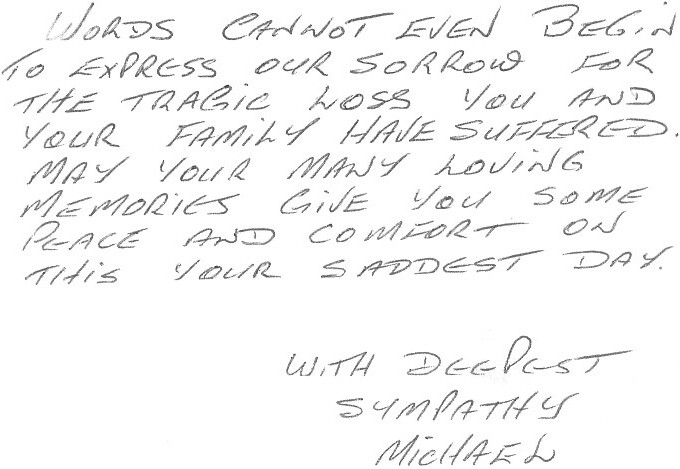 WORDS CANNOT EVEN BEGIN
TO EXPRESS OUR SORROW FOR
THE TRAGIC LOSS YOU AND
YOUR FAMILY HAVE SUFFERED.
MAY YOUR MANY LOVING
MEMORIES GIVE YOU SOME
PEACE AND COMFORT ON
THIS YOUR SADDEST DAY.
WITH DEEPEST
SYMPATHY
MICHAEL